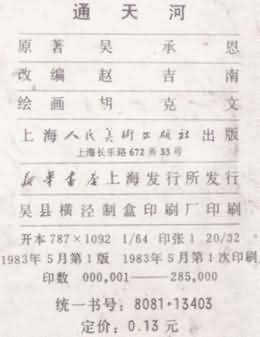 通天河
原著 吴承恩
改编 赵吉南
绘画 胡克文
上海人民美术出版社出版
上海长乐路672弄33号
新华书店上海发行所发行
吴县横泾制盒印刷厂印刷
开本787×1092 1/64 印张1 20/32
1983年5月第1版 1983年5月第1次印刷
印数 000,001——285,000
统一书号：8081·13403
定价：0.13元